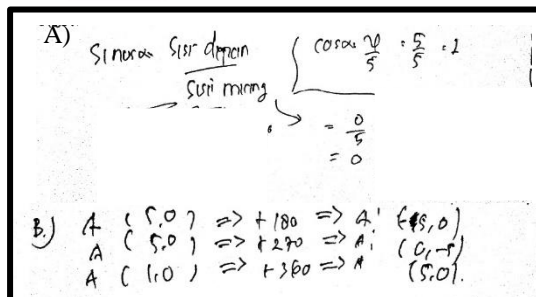 A)
Sinus α Sisi depan / Sisi miring
cos α x/5 = 5/5 = 1
= 0/5
= 0
B.) A (5,0) => +180 => A' (-5,0)
A (5,0) => +270 => A' (0,-5)
A (1,0) => +360 => A (5,0).